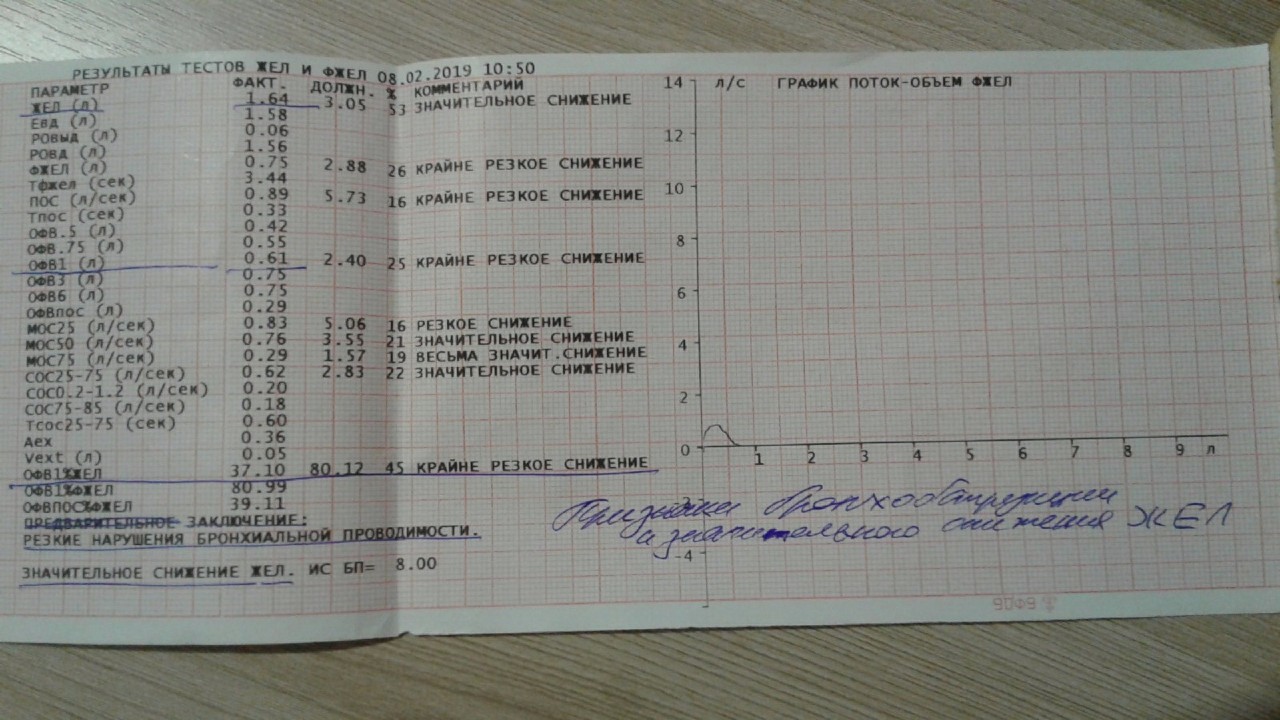 РЕЗУЛЬТАТЫ ТЕСТОВ ЖЕЛ И ФЖЕЛ 08.02.2019 10:50
ПАРАМЕТР ФАКТ. ДОЛЖН. % КОММЕНТАРИЙ
ЖЕЛ (л) 1.64 3.05 53 ЗНАЧИТЕЛЬНОЕ СНИЖЕНИЕ
Евд (л) 1.58
РОвыд (л) 0.06
РОвд (л) 1.56
ФЖЕЛ (л) 0.75 2.88 26 КРАЙНЕ РЕЗКОЕ СНИЖЕНИЕ
Тфжел (сек) 3.44
ПОС (л/сек) 0.89 5.73 16 КРАЙНЕ РЕЗКОЕ СНИЖЕНИЕ
Тпос (сек) 0.33
ОФВ.5 (л) 0.42
ОФВ.75 (л) 0.55
ОФВ1 (л) 0.61 2.40 25 КРАЙНЕ РЕЗКОЕ СНИЖЕНИЕ
ОФВ3 (л) 0.75
ОФВ6 (л) 0.75
ОФВпос (л) 0.29
МОС25 (л/сек) 0.83 5.06 16 РЕЗКОЕ СНИЖЕНИЕ
МОС50 (л/сек) 0.76 3.55 21 ЗНАЧИТЕЛЬНОЕ СНИЖЕНИЕ
МОС75 (л/сек) 0.29 1.57 19 ВЕСЬМА ЗНАЧИТ.СНИЖЕНИЕ
СОС25-75 (л/сек) 0.62 2.83 22 ЗНАЧИТЕЛЬНОЕ СНИЖЕНИЕ
СОС0.2-1.2 (л/сек) 0.20
СОС75-85 (л/сек) 0.18
Тсос25-75 (сек) 0.60
Аех 0.36
Vext (л) 0.05
ОФВ1%ЖЕЛ 37.10 80.12 45 КРАЙНЕ РЕЗКОЕ СНИЖЕНИЕ
ОФВ1%ФЖЕЛ 80.99
ОФВПОС%ФЖЕЛ 39.11
ПРЕДВАРИТЕЛЬНОЕ ЗАКЛЮЧЕНИЕ:
РЕЗКИЕ НАРУШЕНИЯ БРОНХИАЛЬНОЙ ПРОВОДИМОСТИ.
ЗНАЧИТЕЛЬНОЕ СНИЖЕНИЕ ЖЕЛ. ИС БП= 8.00
14 л/с ГРАФИК ПОТОК-ОБЪЕМ ФЖЕЛ
12
10
8
6
4
2
0 1 2 3 4 5 6 7 8 9 л
Признаки бронхообструкции
и значительного снижения ЖЕЛ
-4